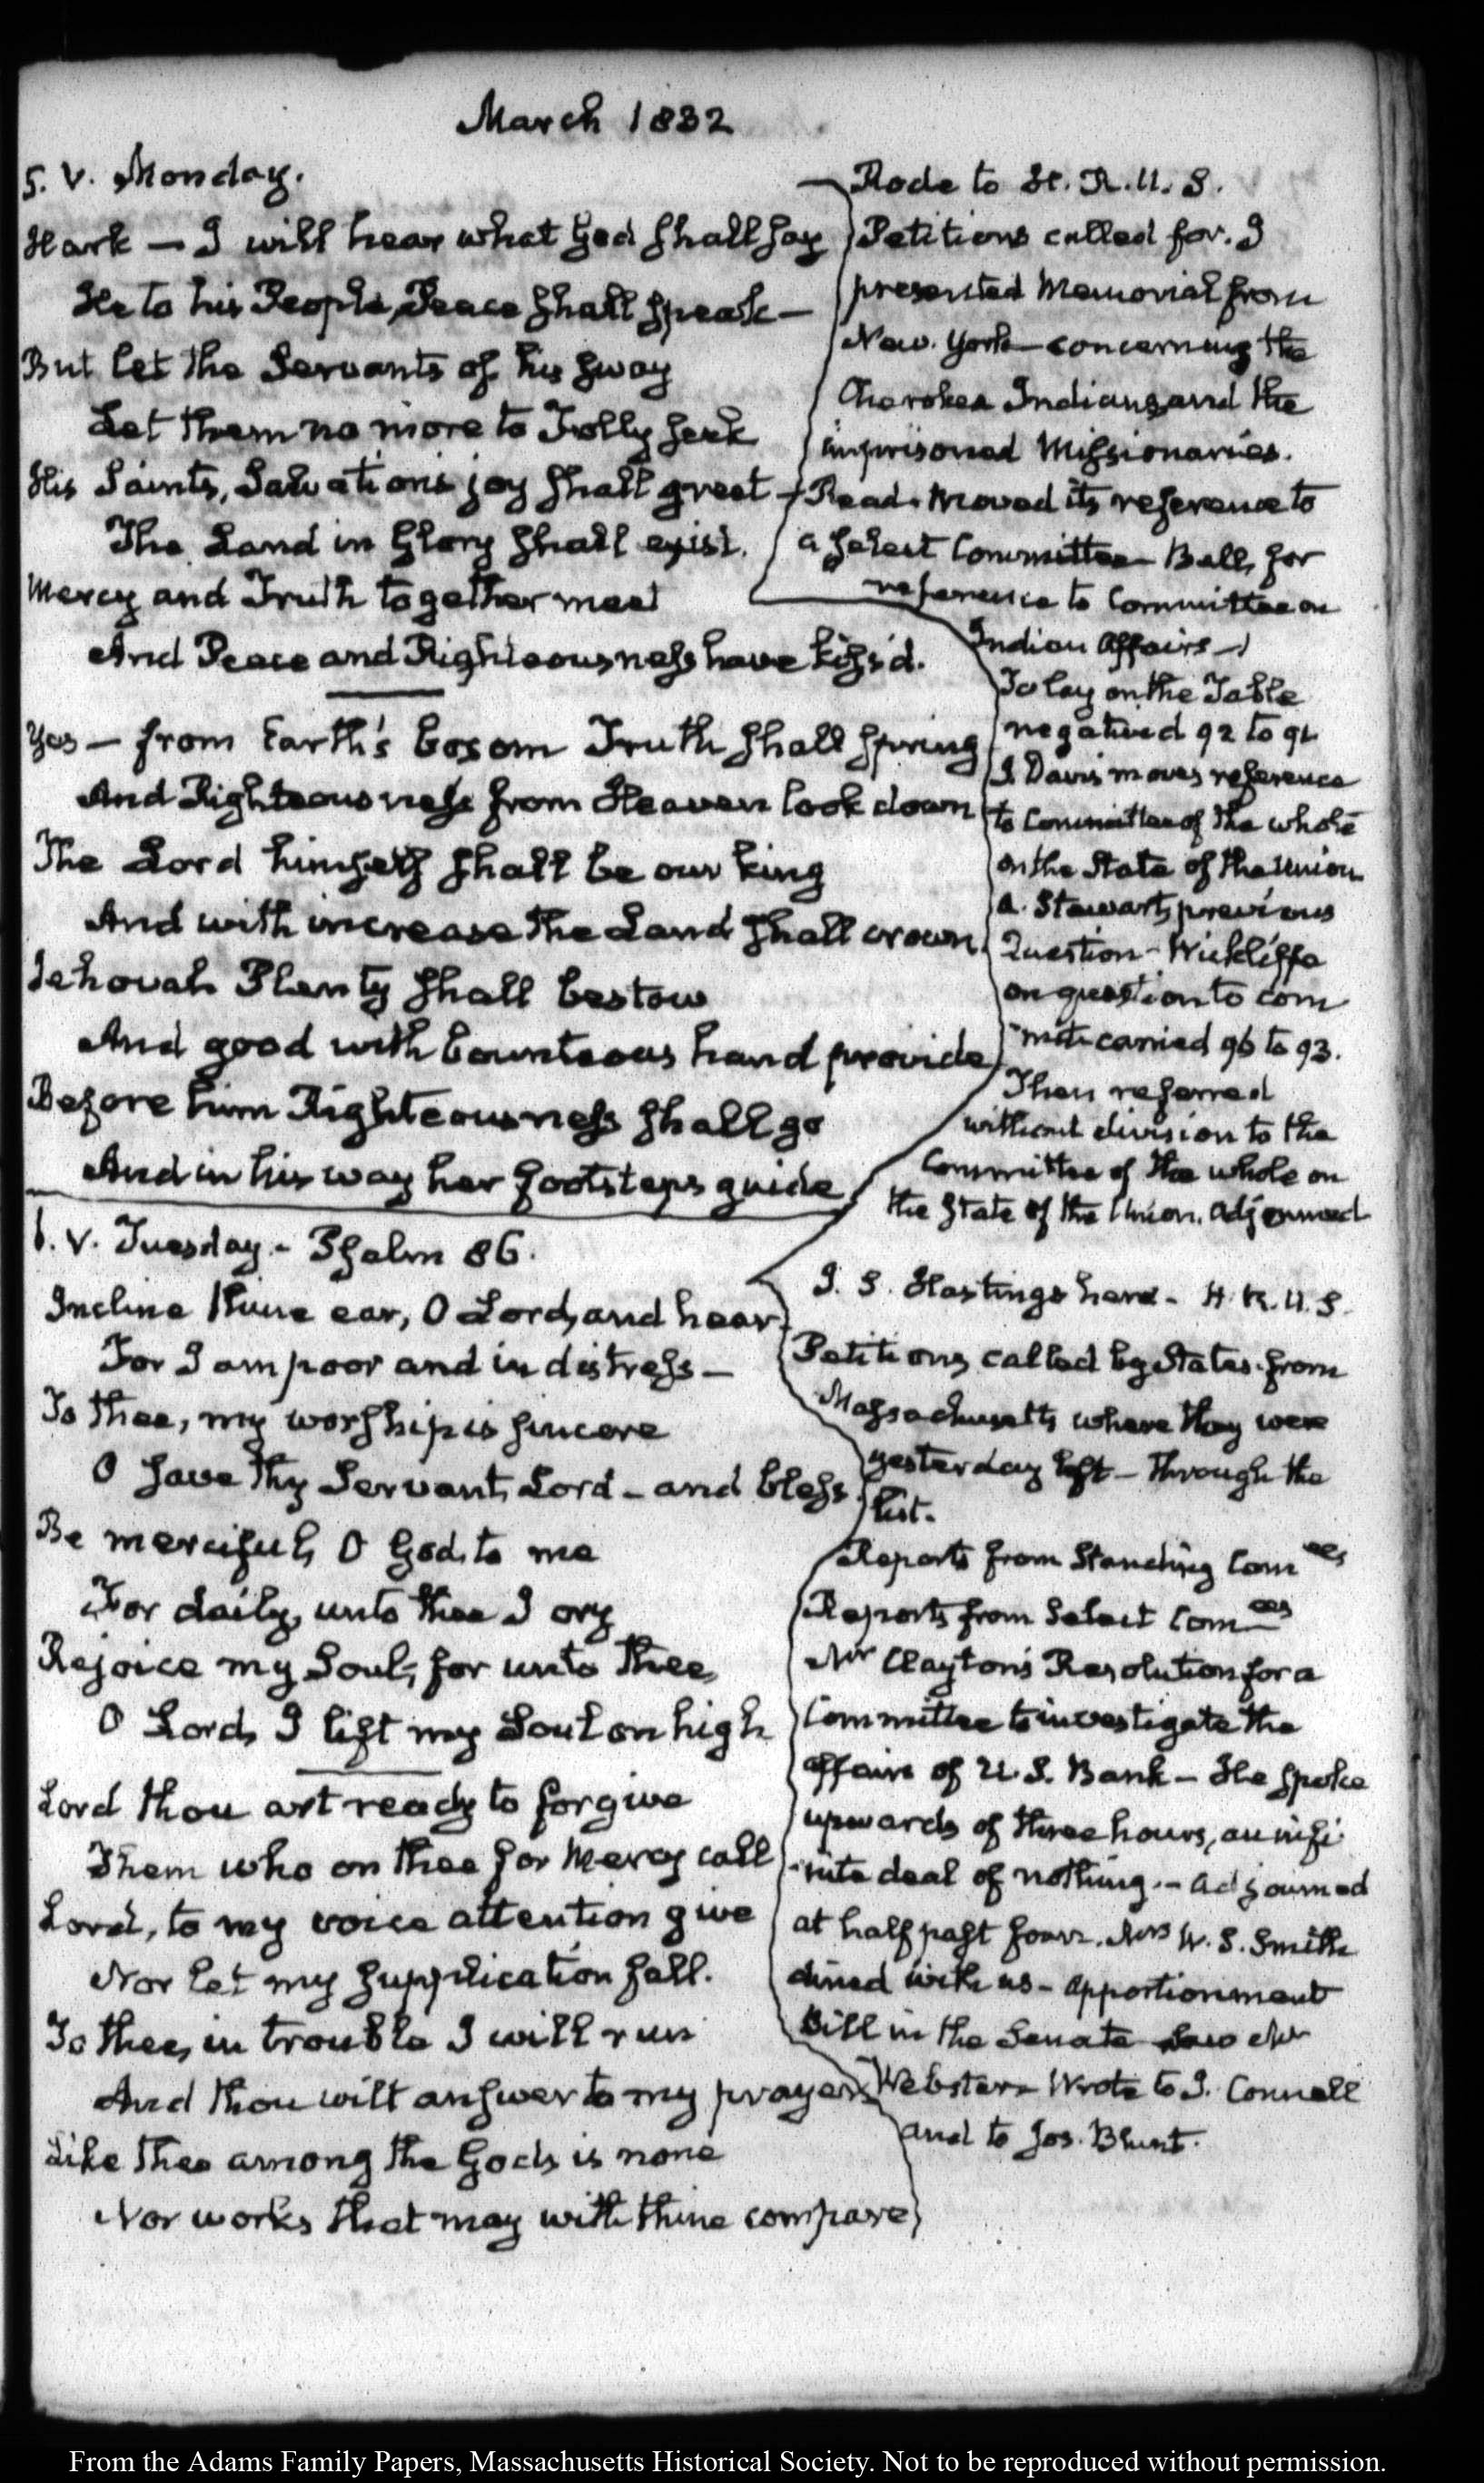 March 1832
5. V. Monday.
Hark — I will hear what God shall say
He to his People, Peace shall speak —
But let the Servants of his sway
Let them no more to Folly seek
His Saints, Salvation's joy shall greet
The Land in Glory shall exist.
Mercy and Truth together meet
And Peace and Righteousness have kiss'd.
Yes — from Earth's bosom Truth shall spring
And Righteousness from Heaven look down
The Lord himself shall be our king
And with increase the Land shall crown.
Jehovah Plenty shall bestow
And good with bounteous hand provide
Before him Righteousness shall go
And in his way her footsteps guide
Rode to H. R. U. S.
Petitions called for. I
presented Memorial from
New. York — concerning the
Cherokee Indians, and the
imprisoned Missionaries.
Read. Moved its reference to
a select Committee — Bell, for
reference to Committee on
Indian Affairs —
To lay on the Table
negatived 92 to 91
J. Davis moves reference
to Committee of the whole
on the State of the Union
A. Stewart, previous
Question — Wickliffe
on question to com
mit carried 96 to 93.
Then referred
without division to the
Committee of the whole on
the State of the Union. Adjourned
6. V. Tuesday. - Psalm 86.
Incline thine ear, O Lord, and hear
For I am poor and in distress —
To thee, my worship is sincere
O save thy Servant, Lord — and bless
Be merciful, O God, to me
For daily, unto thee I cry
Rejoice my Soul, for unto thee,
O Lord, I lift my Soul on high
Lord thou art ready to forgive
Them who on thee for Mercy call
Lord, to my voice attention give
Nor let my supplication fall.
To thee, in trouble I will run
And thou wilt answer to my prayer
Like thee among the Gods is none
Nor works that may with thine compare,
J. S. Hastings here — H. R. U. S.
Petitions called by States from
Massachusetts where they were
yesterday left — through the
list.
Reports from Standing Com ees
Reports from Select Com ees
Mr Clayton's Resolution for a
Committee to investigate the
affairs of U. S. Bank — He spoke
upwards of three hours, an infi
nite deal of nothing. — Adjourned
at half past four. Mrs W. S. Smith
dined with us — Apportionment
Bill in the Senate — Saw Mr
Webster — Wrote to J. Connell
and to Jos. Blunt.
From the Adams Family Papers, Massachusetts Historical Society. Not to be reproduced without permission.